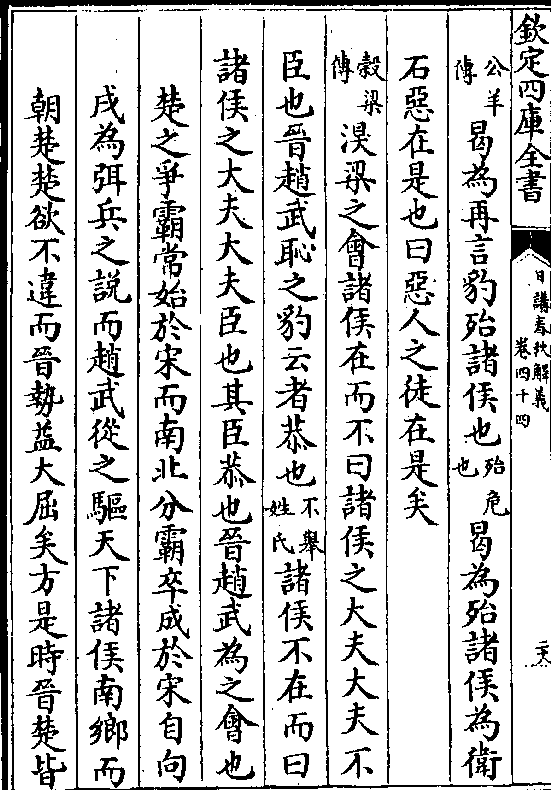 欽定四庫全書
日講春秋解義
卷四十四
公羊傳曷為再言豹殆諸侯也殆危也曷為殆諸侯為衛
石惡在是也曰惡人之徒在是矣
穀梁傳湨梁之會諸侯在而不曰諸侯之大夫大夫不
臣也晉趙武恥之豹云者恭也不舉姓氏諸侯不在而曰
諸侯之大夫大夫臣也其臣恭也晉趙武為之會也
楚之爭霸常始於宋而南北分霸卒成於宋自向
戌為弭兵之說而趙武從之驅天下諸侯南鄉而
朝楚楚欲不違而晉勢益大屈矣方是時晉楚皆